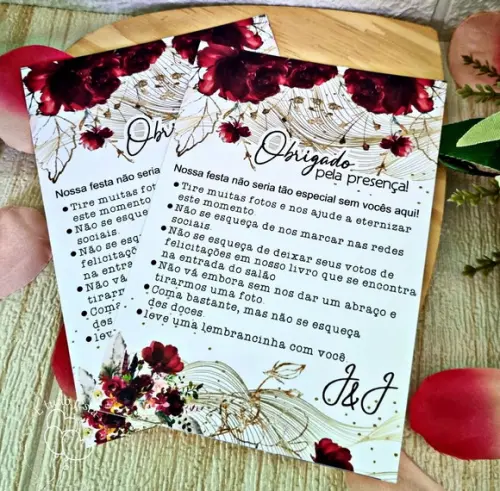 Obrigado
pela presença!
Nossa festa não seria tão especial sem vocês aqui!
•Tire muitas fotos e nos ajude a eternizar
este momento.
•Não se esqueça de nos marcar nas redes
sociais.
•Não se esqueça de deixar seus votos de
felicitações em nosso livro que se encontra
na entrada do salão
•Não vá embora sem nos dar um abraço e
tirarmos uma foto.
•Coma bastante, mas não se esqueça
dos doces.
•leve uma lembrancinha com você.
J&J
Obri
Nossa festa não seria
•Tire muitas fot
este momento.
•Não se esqueç
sociais.
•Não se esqu
felicitaçõe
na entrad
•Não vá
tirarm
•Coma
dos
•lev